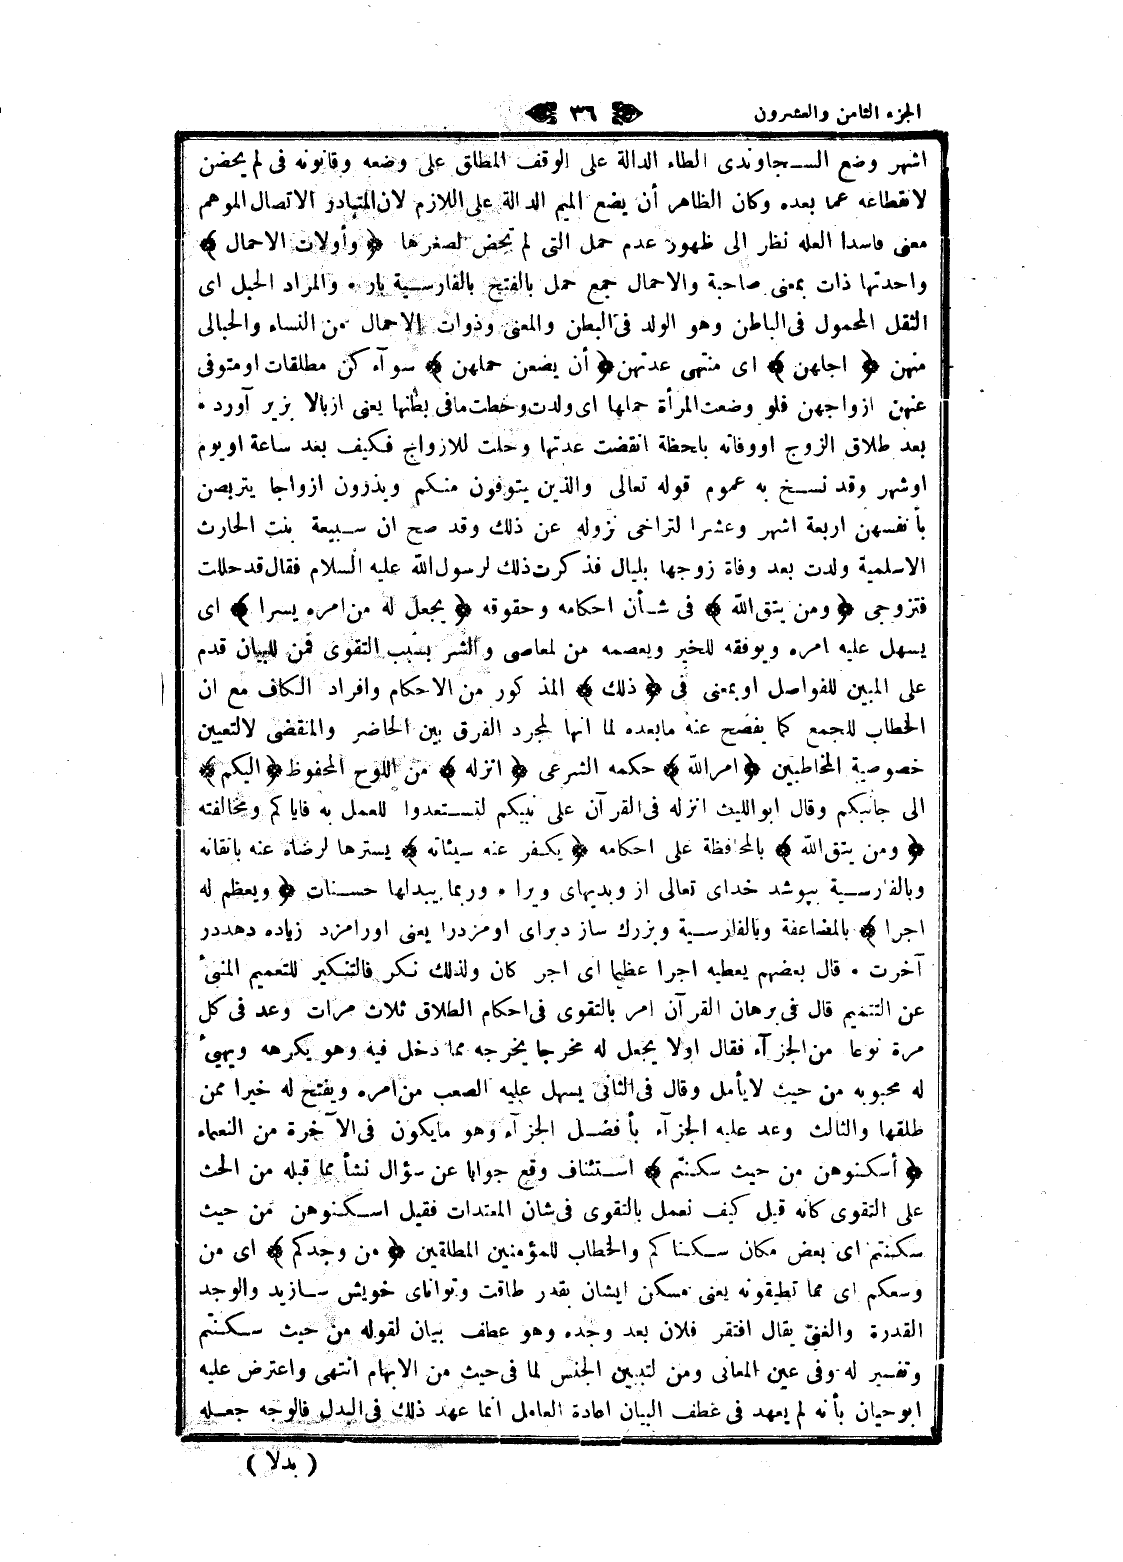 الجزء الثامن والعشرون ٣٦
اشهر وضع السجاوندى الطاء الدالة على الوقف المطلق على وضعه وقانونه فى لم يحضن
لانقطاعه عما بعده وكان الظاهر أن يضع الميم الدالة على اللازم لان المتبادر الاتصال الموهم
معنى فاسدا العله نظر الى ظهور عدم حمل التى لم تحض لصغرها ﴿ وأولات الاحمال ﴾
واحدتها ذات بمعنى صاحبة والاحمال جمع حمل بالفتح بالفارسية بار • والمراد الحبل اى
الثقل المحمول فى الباطن وهو الولد فى البطن والمعنى وذوات الاحمال من النساء والحبالى
منهن ﴿ اجلهن ﴾ اى منتهى عدتهن ﴿ أن يضعن حملهن ﴾ سوآء كن مطلقات او متوفى
عنهن ازواجهن فلو وضعت المرأة حملها اى ولدت وحطت مافى بطنها يعنى ازبالا بزير آورد •
بعد طلاق الزوج او وفاته بلحظة انقضت عدتها وحلت للازواج فكيف بعد ساعة او يوم
او شهر وقد نسخ به عموم قوله تعالى والذين يتوفون منكم ويذرون ازواجا يتربصن
بأنفسهن اربعة اشهر وعشرا لتراخى نزوله عن ذلك وقد صح ان سبيعة بنت الحارث
الاسلمية ولدت بعد وفاة زوجها بليال فذكرت ذلك لرسول الله عليه السلام فقال قد حللت
فتزوجى ﴿ ومن يتق الله ﴾ فى شأن احكامه وحقوقه ﴿ يجعل له من امره يسرا ﴾ اى
يسهل عليه امره ويوفقه للخير ويعصمه من لمعاصى والشر بسبب التقوى فمن للبيان قدم
على المبين للفواصل او بمعنى فى ﴿ ذلك ﴾ المذكور من الاحكام وافراد الكاف مع ان
الخطاب للجمع كما يفصح عنه مابعده لما انها لمجرد الفرق بين الحاضر والمنقضى لالتعيين
خصوصية المخاطبين ﴿ امر الله ﴾ حكمه الشرعى ﴿ انزله ﴾ من اللوح المحفوظ ﴿ اليكم ﴾
الى جانبكم وقال ابو الليث انزله فى القرآن على نبيكم لتستعدوا للعمل به فاياكم ومخالفته
﴿ ومن يتق الله ﴾ بالمحافظة على احكامه ﴿ يكفر عنه سيئاته ﴾ يسترها لرضاه عنه باتقائه
وبالفارسية بپوشد خداى تعالى از وبديهاى ويرا • وربما يبدلها حسنات ﴿ ويعظم له
اجرا ﴾ بالمضاعفة وبالفارسية وبزرك ساز دبراى اومزدرا يعنى اورامزد زياده دهددر
آخرت • قال بعضهم يعطيه اجرا عظيما اى اجر كان ولذلك نكر فالتنكير للتعميم المنبئ
عن التتميم قال فى برهان القرآن امر بالتقوى فى احكام الطلاق ثلاث مرات وعد فى كل
مرة نوعا من الجزآء فقال اولا يجعل له مخرجا يخرجه مما دخل فيه وهو يكرهه ويهيئ
له محبوبه من حيث لايأمل وقال فى الثانى يسهل عليه الصعب من امره ويفتح له خيرا ممن
طلقها والثالث وعد عليه الجزآء بأفضل الجزآء وهو مايكون فى الآخرة من النعماء
﴿ أسكنوهن من حيث سكنتم ﴾ استئناف وقع جوابا عن سؤال نشأ مما قبله من الحث
على التقوى كانه قيل كيف نعمل بالتقوى فى شان المعتدات فقيل اسكنوهن من حيث
سكنتم اى بعض مكان سكناكم والخطاب للمؤمنين المطلقين ﴿ من وجدكم ﴾ اى من
وسعكم اى مما تطيقونه يعنى مسكن ايشان بقدر طاقت وتواناى خويش سازيد والوجد
القدرة والغنى يقال افتقر فلان بعد وجده وهو عطف بيان لقوله من حيث سكنتم
وتفسير له وفى عين المعانى ومن لتبيين الجنس لما فى حيث من الابهام انتهى واعترض عليه
ابوحيان بأنه لم يعهد فى عطف البيان اعادة العامل انما عهد ذلك فى البدل فالوجه جعله
( بدلا )